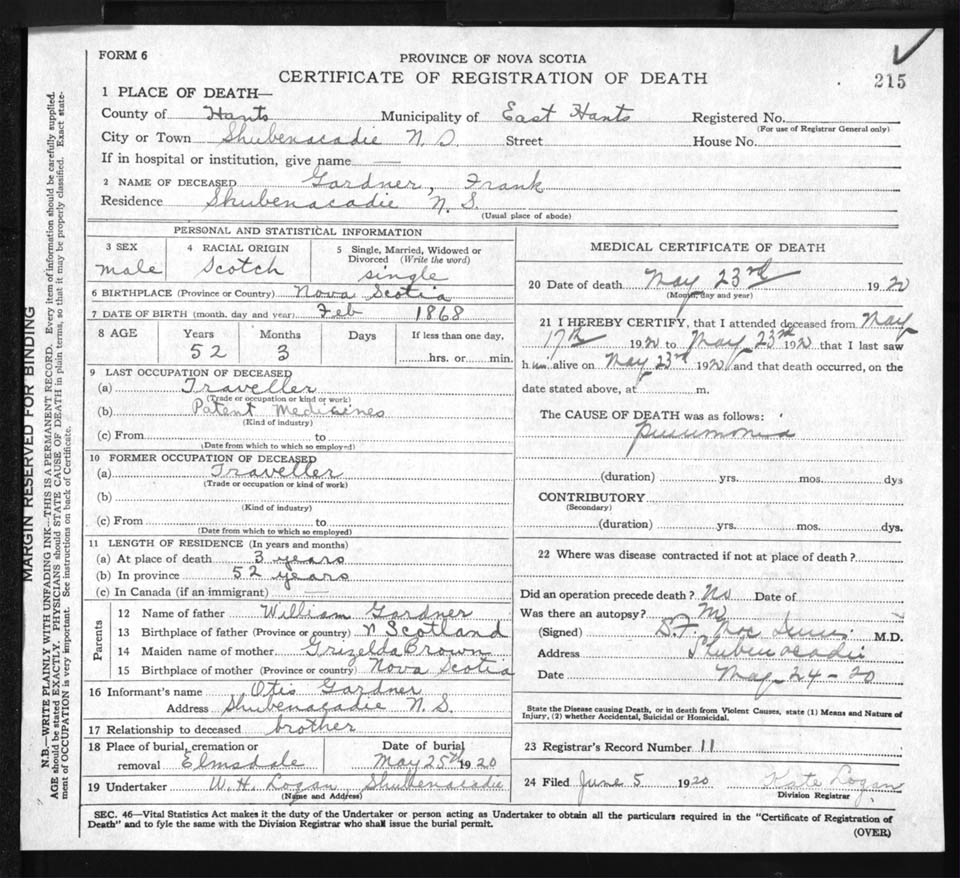 FORM 6
PROVINCE OF NOVA SCOTIA
CERTIFICATE OF REGISTRATION OF DEATH
215
1 PLACE OF DEATH—
County of Hants Municipality of East Hants Registered No.
(For use of Registrar General only)
City or Town Shubenacadie N. S. Street House No.
If in hospital or institution, give name —
2 NAME OF DECEASED Gardner, Frank
Residence Shubenacadie N. S.
(Usual place of abode)
PERSONAL AND STATISTICAL INFORMATION
3 SEX 4 RACIAL ORIGIN 5 Single, Married, Widowed or Divorced (Write the word)
male Scotch single
6 BIRTHPLACE (Province or Country) Nova Scotia
7 DATE OF BIRTH (month, day and year) Feb 1868
8 AGE Years Months Days If less than one day,
52 3 hrs. or min.
9 LAST OCCUPATION OF DECEASED
(a) Traveller
(Trade or occupation or kind of work)
(b) Patent Medicines
(Kind of industry)
(c) From to
(Date from which to which so employed)
10 FORMER OCCUPATION OF DECEASED
(a) Traveller
(Trade or occupation or kind of work)
(b)
(Kind of industry)
(c) From to
(Date from which to which so employed)
11 LENGTH OF RESIDENCE (In years and months)
(a) At place of death 3 years
(b) In province 52 years
(c) In Canada (if an immigrant) —
Parents
12 Name of father William Gardner
13 Birthplace of father (Province or country) N Scotland
14 Maiden name of mother Grizelda Brown
15 Birthplace of mother (Province or country) Nova Scotia
16 Informant's name Otis Gardner
Address Shubenacadie N. S.
17 Relationship to deceased brother
18 Place of burial, cremation or removal Elmsdale Date of burial May 25th 1920
19 Undertaker W. H. Logan Shubenacadie
(Name and Address)
MEDICAL CERTIFICATE OF DEATH
20 Date of death May 23rd 1920
(Month, day and year)
21 I HEREBY CERTIFY, that I attended deceased from May
17th 1920 to May 23rd 1920 that I last saw
him alive on May 23rd 1920 and that death occurred, on the
date stated above, at m.
The CAUSE OF DEATH was as follows:
Pneumonia
(duration) yrs. mos. dys
CONTRIBUTORY
(Secondary)
(duration) yrs. mos. dys.
22 Where was disease contracted if not at place of death?
Did an operation precede death? No Date of
Was there an autopsy?
(Signed) M.D.
Address Shubenacadie
Date May 24-20
State the Disease causing Death, or in death from Violent Causes, state (1) Means and Nature of
Injury, (2) whether Accidental, Suicidal or Homicidal.
23 Registrar's Record Number 11
24 Filed June 5 1920 Kate Logan
Division Registrar
SEC. 46—Vital Statistics Act makes it the duty of the Undertaker or person acting as Undertaker to obtain all the particulars required in the "Certificate of Registration of
Death" and to fyle the same with the Division Registrar who shall issue the burial permit.
(OVER)
MARGIN RESERVED FOR BINDING
N.B.—WRITE PLAINLY WITH UNFADING INK—THIS IS A PERMANENT RECORD. Every item of information should be carefully supplied.
AGE should be stated EXACTLY. PHYSICIANS should STATE CAUSE OF DEATH in plain terms, so that it may be properly classified. Exact state-
ment of OCCUPATION is very important. See instructions on back of Certificate.